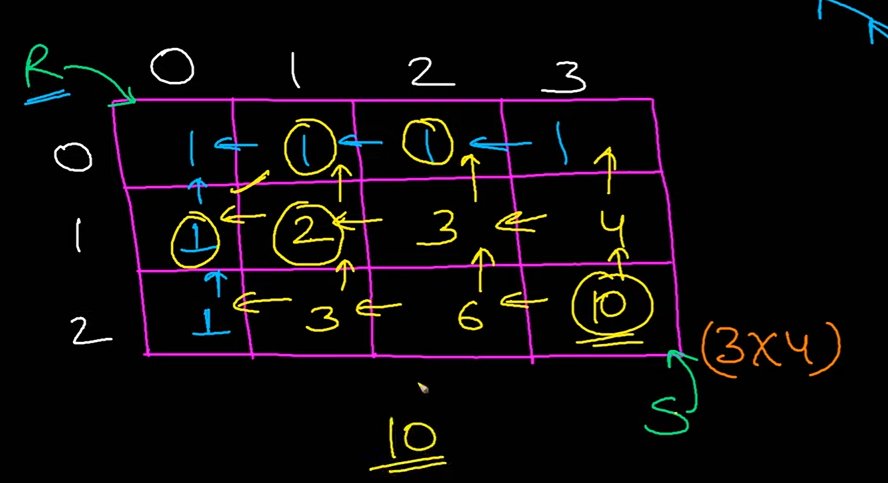 R 0 1 2 3
0 1 1 1 1
1 1 2 3 4
2 1 3 6 10
(3X4)
S
10